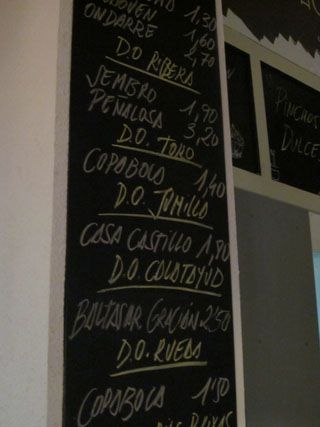 1,30
ONDARRE 1,60
2,70
D.O RIBERA
SEMBRO 1,90
PEÑALOSA 3,20
D.O. TORO
COPABOCA 1,40
D.O. JUMILLA
CASA CASTILLO 1,80
D.O. CALATAYUD
BALTASAR GRACIÁN 2'50
D.O. RUEDA
COPABOCA 1'50
RIAS BAIXAS
PINCHOS
DULCES